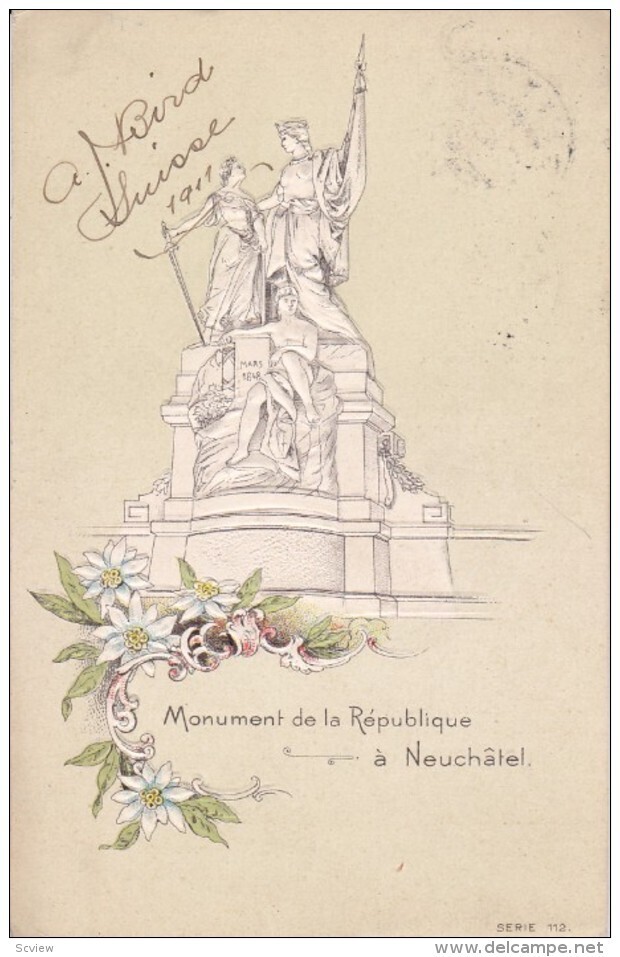 A. J. Bird
Suisse
1911
MARS
1848
Monument de la République
à Neuchâtel.
SERIE 112.
Scview
delcampe.net